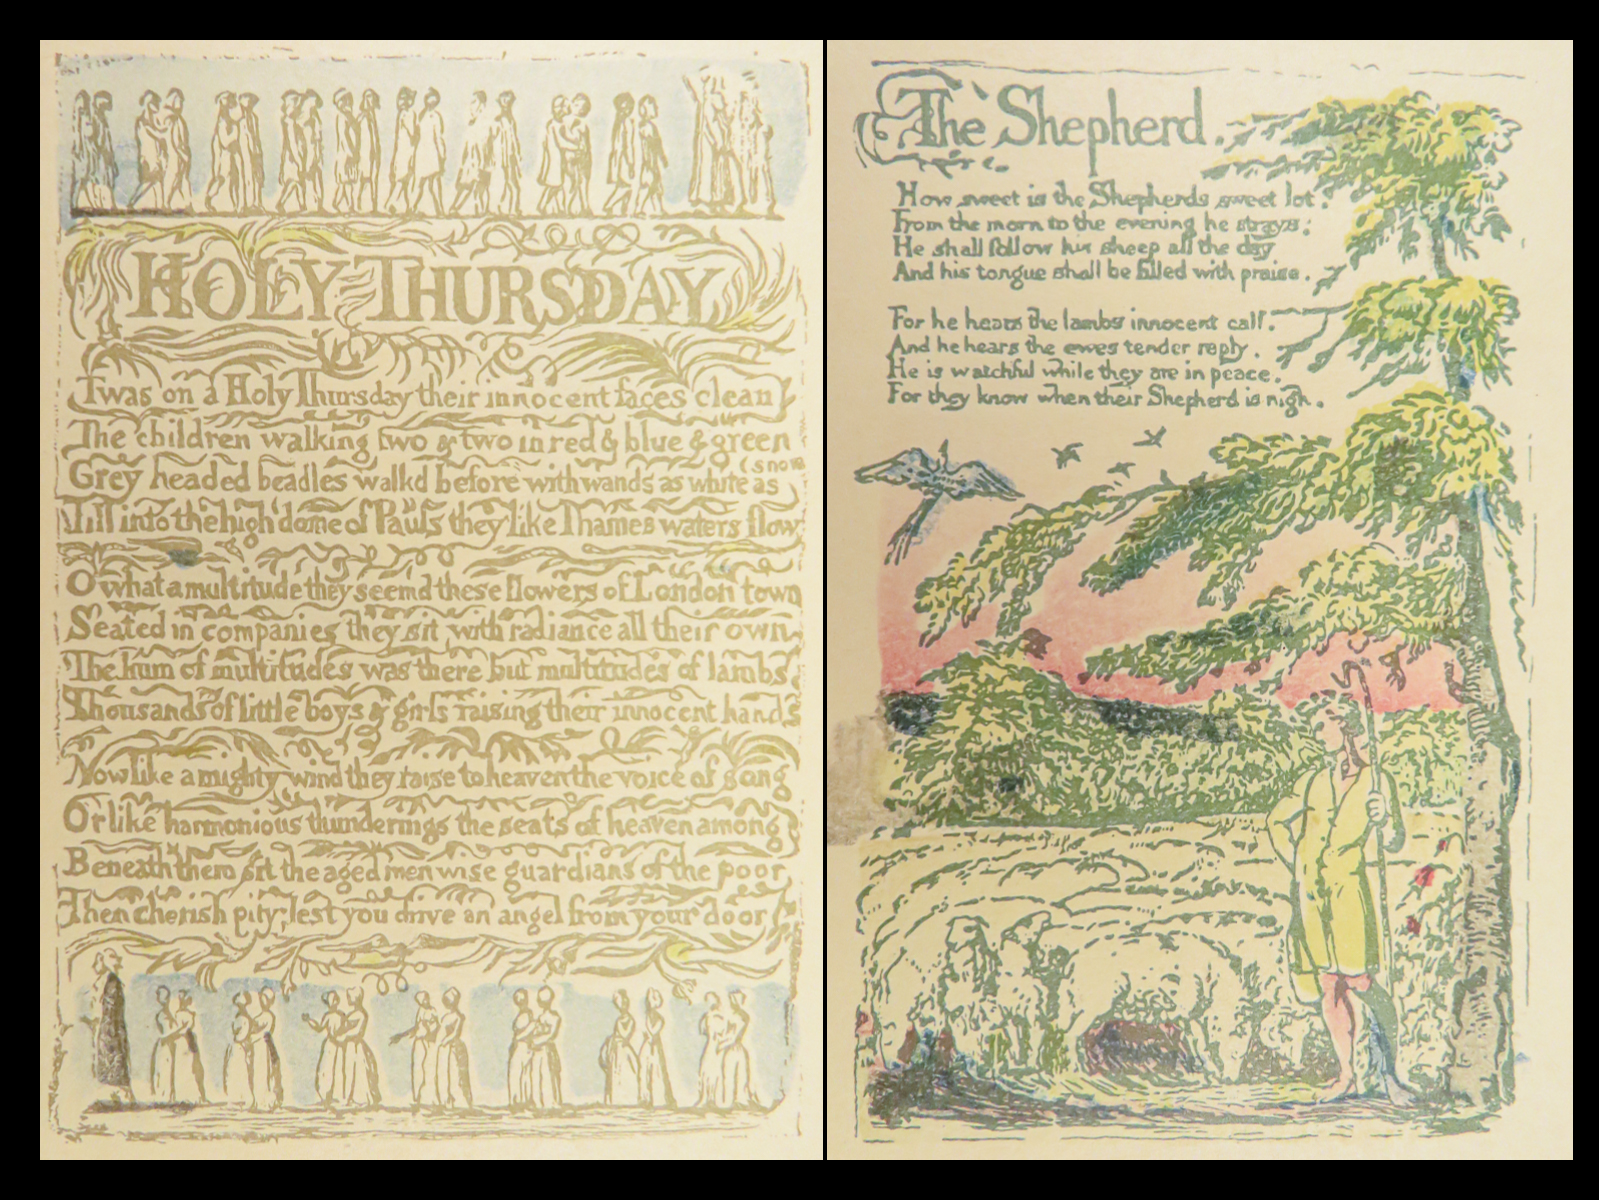 HOLY THURSDAY
Twas on a Holy Thursday their innocent faces clean
The children walking two & two in red & blue & green
Grey headed beadles walkd before with wands as white as
(snow
Till into the high dome of Pauls they like Thames waters flow
O what a multitude they seemd these flowers of London town
Seated in companies they sit with radiance all their own
The hum of multitudes was there but multitudes of lambs
Thousands of little boys & girls raising their innocent hands
Now like a mighty wind they raise to heaven the voice of song
Or like harmonious thunderings the seats of heaven among
Beneath them sit the aged men wise guardians of the poor
Then cherish pity, lest you drive an angel from your door
The Shepherd.
How sweet is the Shepherds sweet lot.
From the morn to the evening he strays:
He shall follow his sheep all the day
And his tongue shall be filled with praise.
For he hears the lambs innocent call.
And he hears the ewes tender reply.
He is watchful while they are in peace.
For they know when their Shepherd is nigh.